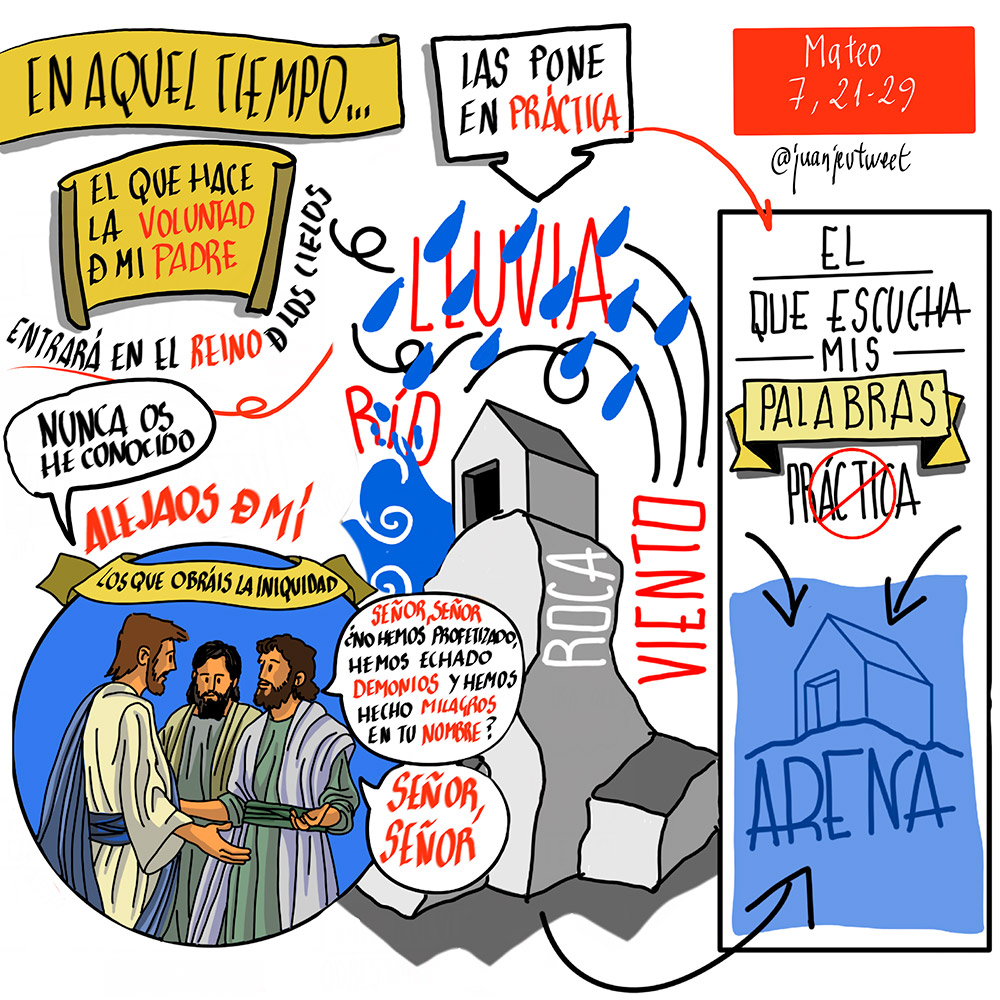 EN AQUEL TIEMPO...
EL QUE HACE
LA VOLUNTAD
Đ MI PADRE
ENTRARÁ EN EL REINO Đ LOS CIELOS
NUNCA OS
HE CONOCIDO
ALEJAOS Đ MÍ
LOS QUE OBRÁIS LA INIQUIDAD
SEÑOR, SEÑOR
¿NO HEMOS PROFETIZADO,
HEMOS ECHADO
DEMONIOS Y HEMOS
HECHO MILAGROS
EN TU NOMBRE?
SEÑOR,
SEÑOR
LAS PONE
EN PRÁCTICA
LLUVIA
RÍO
VIENTO
ROCA
Mateo
7, 21-29
@juanjevtweet
EL
QUE ESCUCHA
MIS
PALABRAS
PRÁCTICA
ARENA